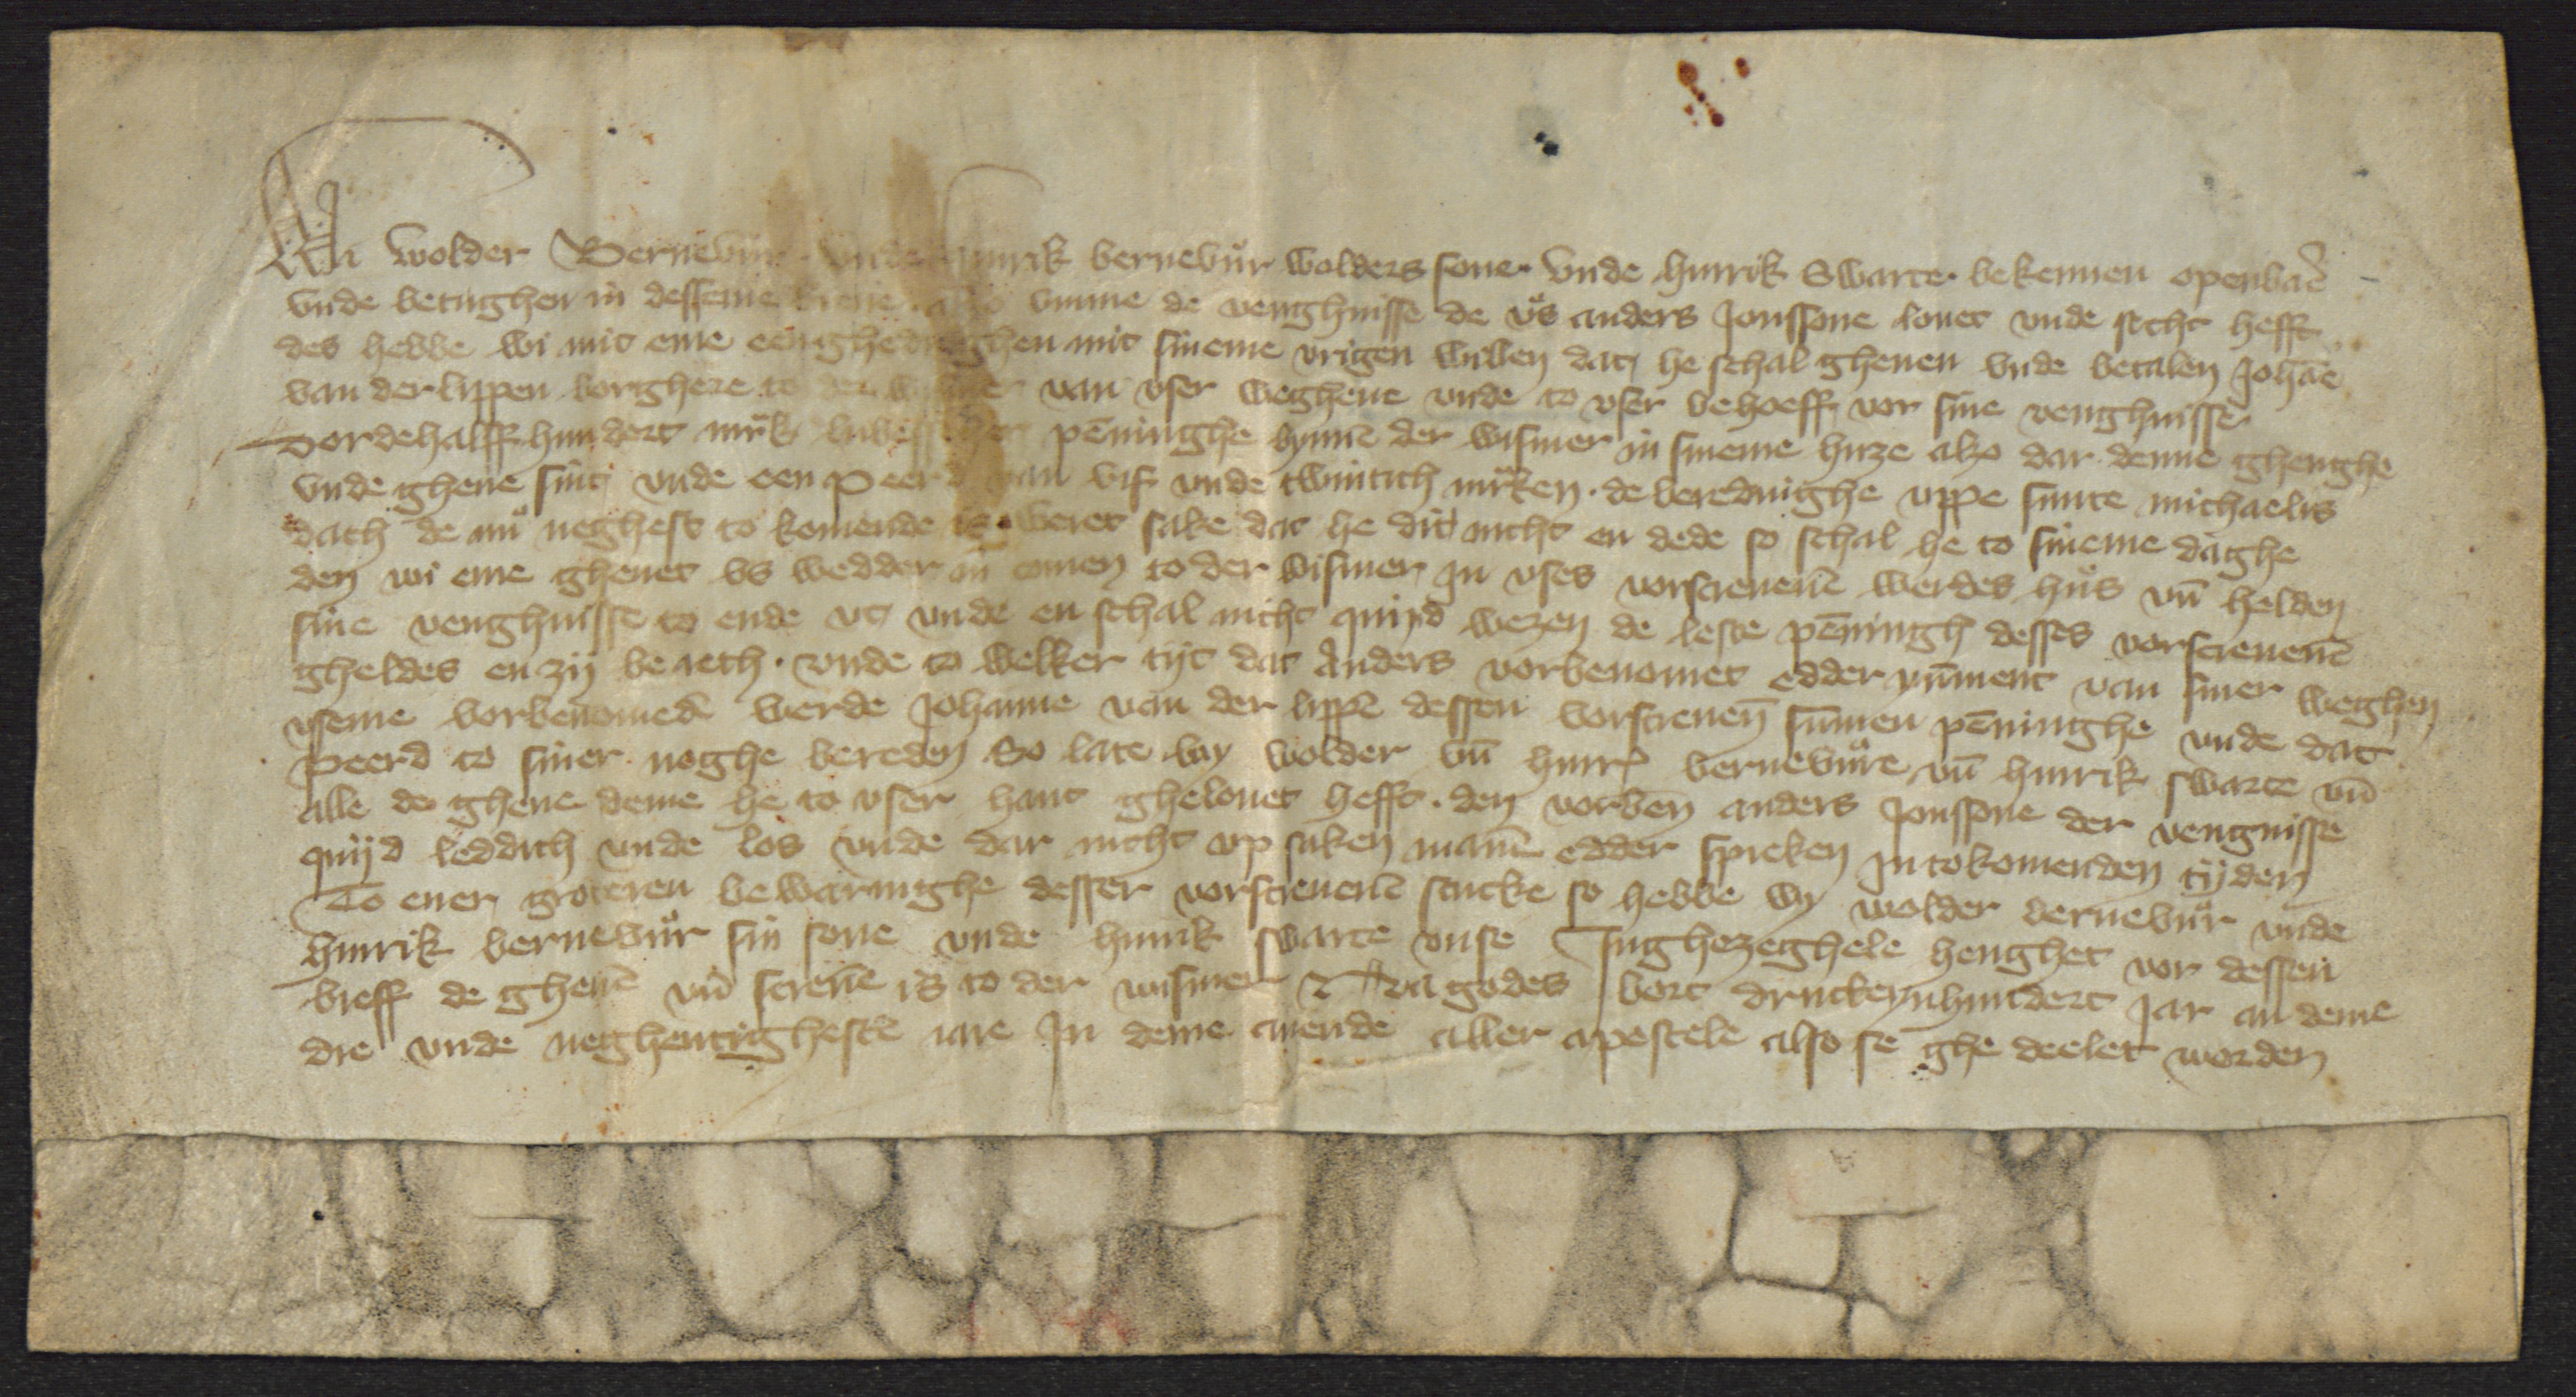 Wi wolder Bernevůr vnde hinrik bernevůr wolders sone vnde hinrik Swarte bekennen openbař
vnde betughen in desseme breue also vmme de venghnisse de vs anders Jonssone louet vnde secht hefft
des hebbe wi mit eme eenghedreghen mit sineme vrigen willen dat he schal gheuen vnde betalen Johāe
van der lippen borghere to der wismer van vser weghene vnde to vser behoeff vor sine venghnisse
vordehalff hundert mrk lubesscher pēninghe bynnē der wismer in sineme huze also dar denne ghenghe
vnde gheue sint vnde een peerd van vif vnde twintich mrken de beredinghe vppe sunte michaelis
dach de nů neghest to komende is weret sake dat he dit nicht en dede so schal he to sineme daghe
den wi eme gheuet vs wedder in comen to der wismer in vses vorscreuenē werdes hůs vn̄ helden
sine venghnisse to ende vt vnde en schal nicht quijd wezen de leste pēningh desses vorscreuenē
gheldes en zij be reth vnde to welker tijt dat Anders vorbenomet edder yūment van siner weghen
vseme vorbenomedē werde Johanne van der lippē dessen vorscreuen̄ sūmen pēninghe vnde dat
peerd to siner noghe bereden So late wy wolder vn̄ hinr bernevůre vn̄ hinrik swarte vn̄
alle de ghene deme he to vser hant ghelouet hefft den vorben̄ anders Jonssone der vengnisse
quijd leddich vnde los vnde dar nicht vp saken manē edder spreken in tokomenden tijden
To ener groteren bewaringhe desser vorscreuenē stucke so hebbe wy wolder bernevůr vnde
hinrik bernevůr sin sone vnde hinrik swarte vnse Inghezeghele henghet vor dessen
breff de gheuē vn̄ screuē is to der wismer Na godes bort druttcyn hundert Jar an deme
dre vnde neghentighestē iare In deme auende aller apostele also se ghe deelet worden